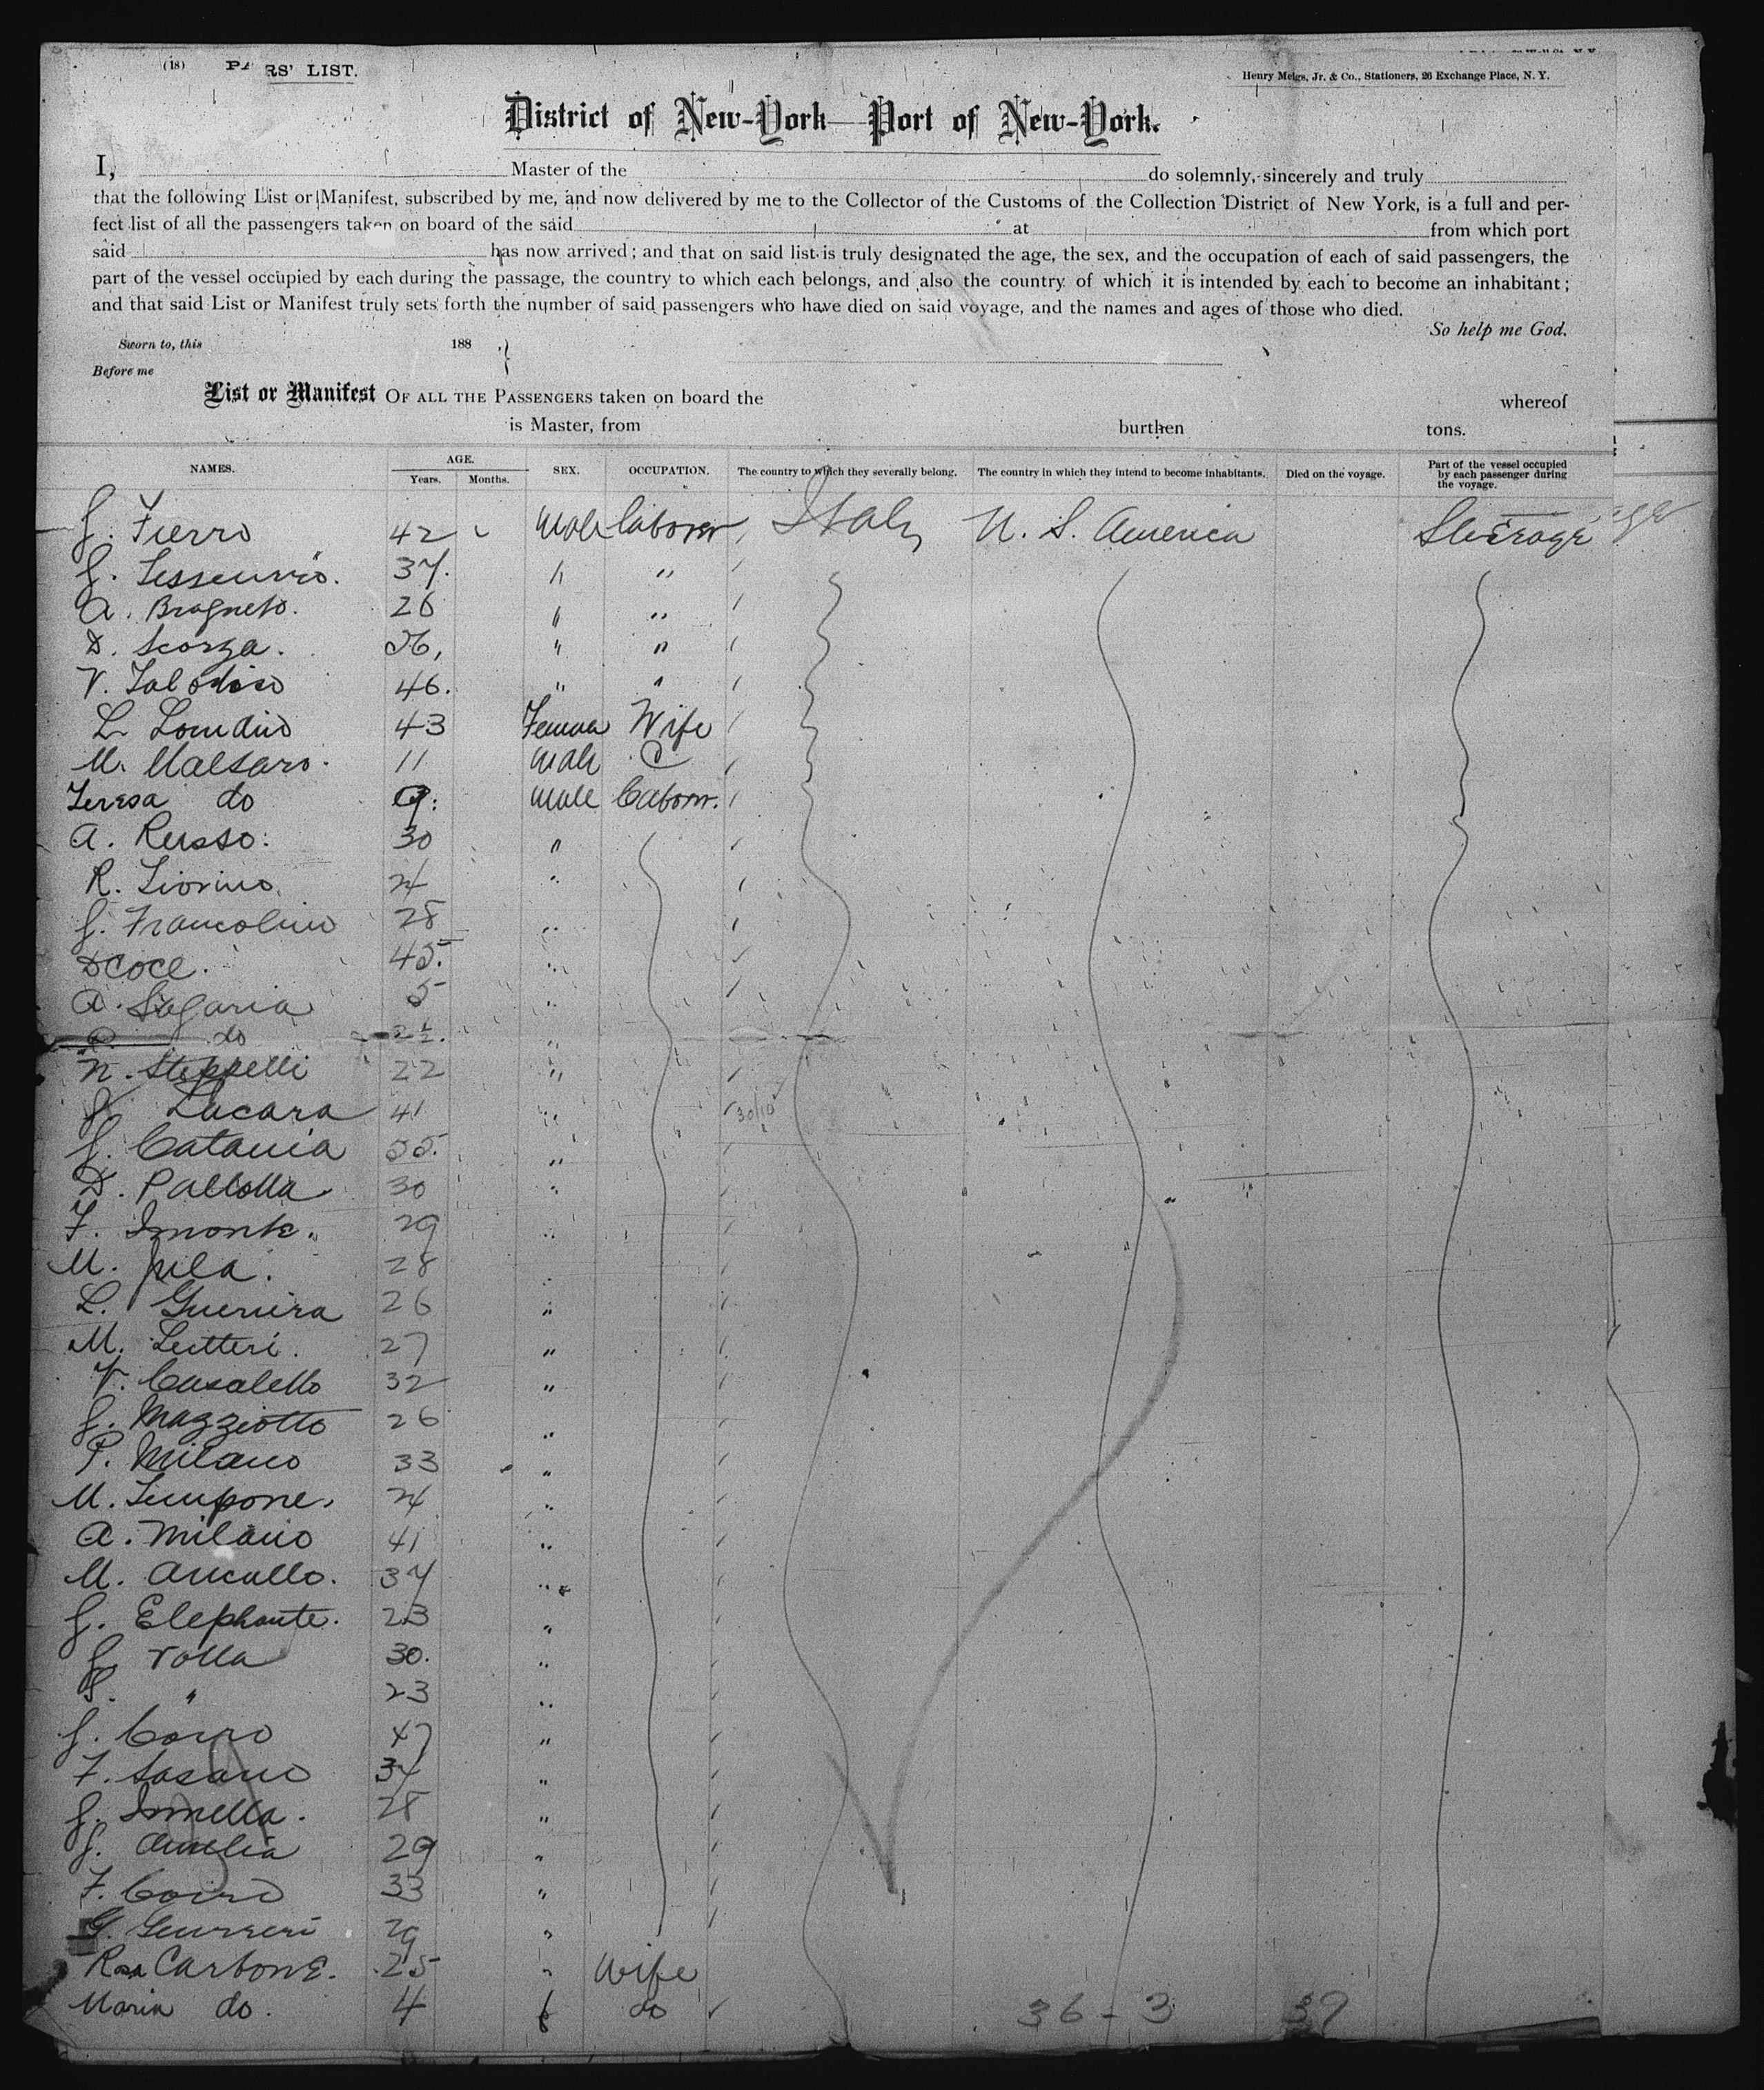 (18) RS' LIST.
Henry Meigs, Jr. & Co., Stationers, 26 Exchange Place, N. Y.
District of New-York—Port of New-York.
I, Master of the do solemnly, sincerely and truly
that the following List or Manifest, subscribed by me, and now delivered by me to the Collector of the Customs of the Collection District of New York, is a full and per-
fect list of all the passengers taken on board of the said at from which port
said has now arrived; and that on said list is truly designated the age, the sex, and the occupation of each of said passengers, the
part of the vessel occupied by each during the passage, the country to which each belongs, and also the country of which it is intended by each to become an inhabitant;
and that said List or Manifest truly sets forth the number of said passengers who have died on said voyage, and the names and ages of those who died.
So help me God.
Sworn to, this 188
Before me
List or Manifest OF ALL THE PASSENGERS taken on board the whereof
is Master, from burthen tons.
NAMES. AGE. Years. Months. SEX. OCCUPATION. The country to which they severally belong. The country in which they intend to become inhabitants. Died on the voyage. Part of the vessel occupied by each passenger during the voyage.
G. Fierro 42 Male labour Italy U. S. America Steerage
G. 37. " "
A. Bragneto. 26 " "
D. Scorza. 26, " "
V. 46. " "
L. 43 Wife
M. 11 Male C
Teresa do 9. Male Labour.
A. Russo. 30 "
R. Fiorino. 24 "
G. Francolino 28 "
D Coce. 45. "
A. Sagaria 5 "
do "
N. Steppelli 22 "
G Lacara 41 " 30/10
G. Catania 55. "
D. Pallotta 30 "
F. 29 "
M. Pila. 28 "
L. Guerrira 26 "
M. Leutteri. 27 "
V. Casaletto 32 "
G. Mazziotto 26 "
P. Milano 33 "
M. Tempone. 24 "
A. Milano 41 "
M. 37 "
G. Elephante. 23 "
G. Rolla 30. "
S. " 23 "
G. Coiro 47 "
F. Sasano 34 "
G. 28 "
G. Amelia 29 "
F. Coiro 33 "
G. Guerreri 29 "
Rosa Carbone. 25 " Wife
Maria do. 4 f do
36-3 39